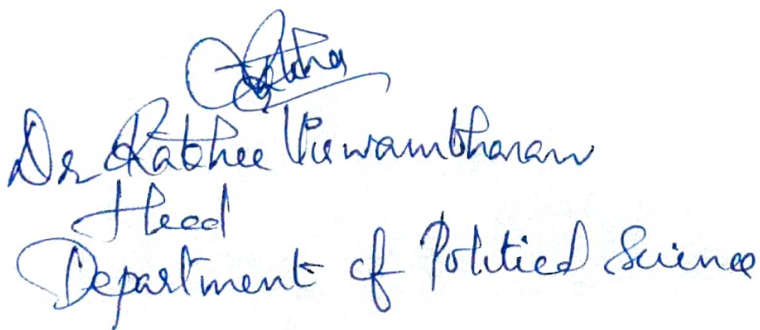 Dr Rakhee Viswambharan
Head
Department of Political Science